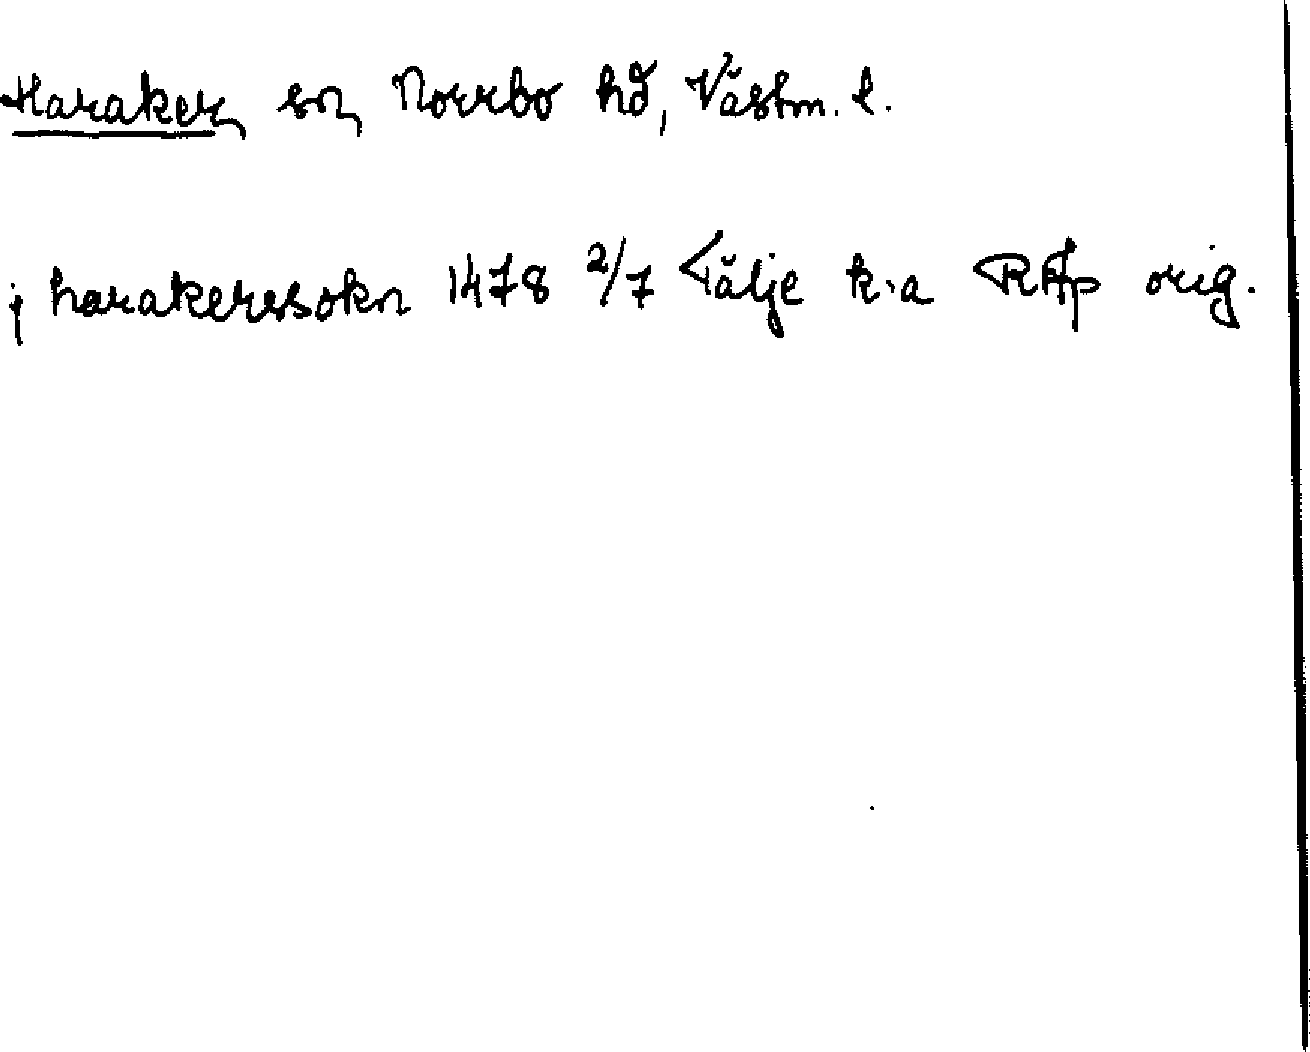 Haraker sn, Norrbo hd, Västm. l.
j harakerssokn 1478 2/7 Tälje k:a RAp orig.